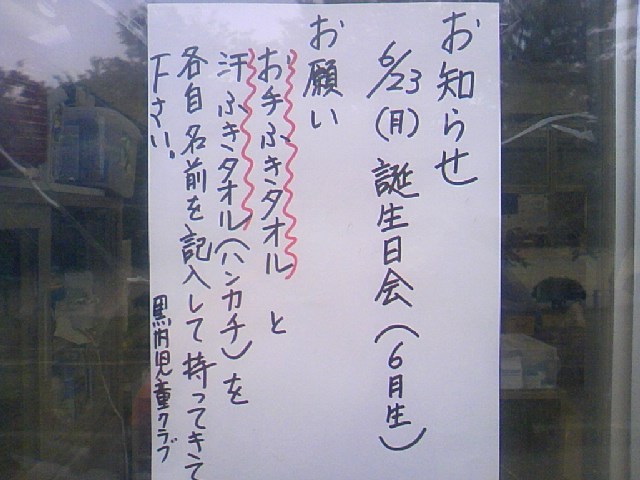 お知らせ
6/23(月)誕生日会(6月生)
お願い
お手ふきタオルと
汗ふきタオル(ハンカチ)を
各自名前を記入して持ってきて
下さい。
黒内児童クラブ